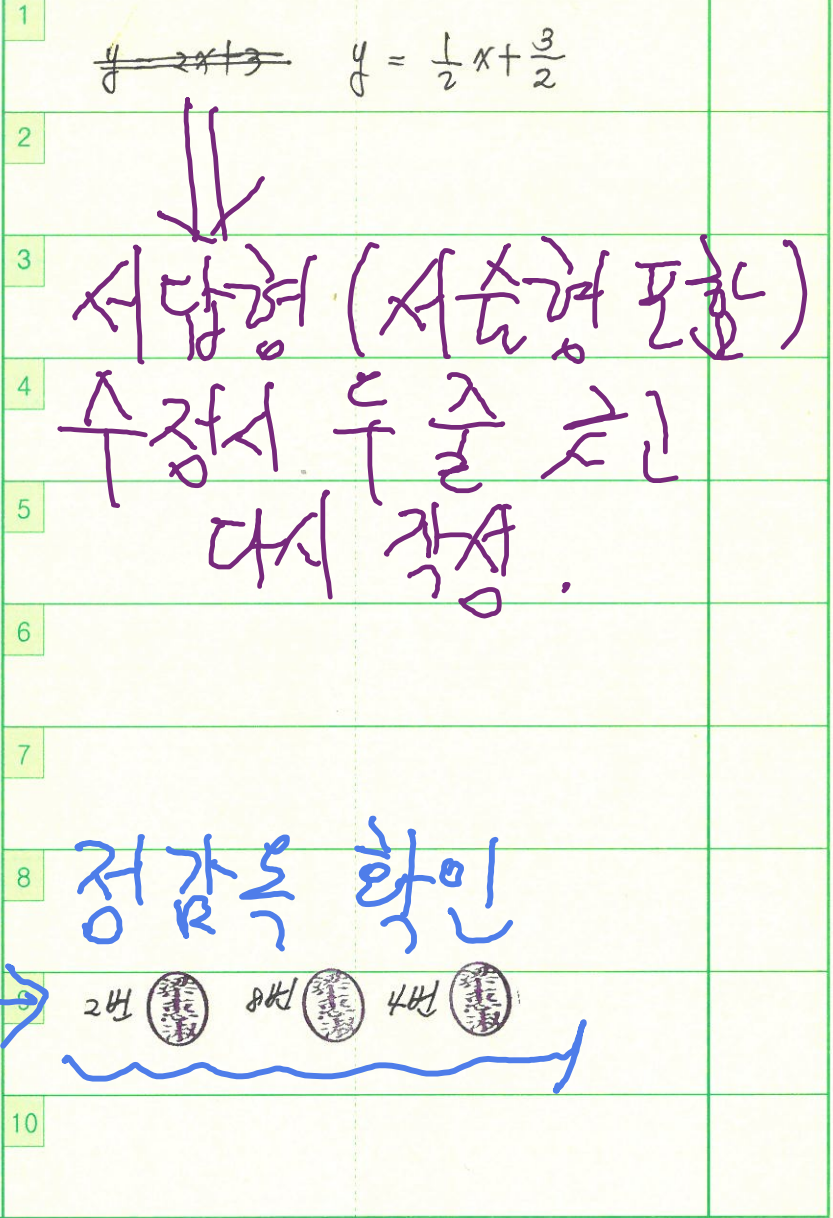 1 y = 2x+3 y = 1/2 x + 3/2
2
3 서답형 (서술형 포함)
4 수정시 두줄 긋긴
5 다시 작성.
6
7
8 정감독 확인
9 2번 8번 4번
10